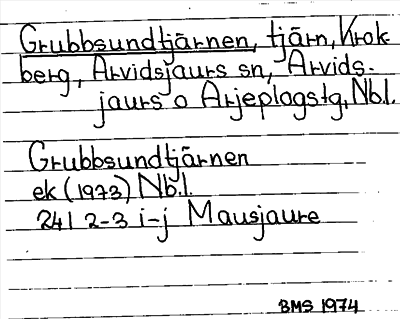 Grubbsundtjärnen, tjärn, Krok
berg, Arvidsjaurs sn, Arvids-
jaurs o Arjeplogs tg, Nbl.
Grubbsundtjärnen
ek (1973) Nb.l.
24I 2-3 i-j Mausjaure
BMS 1974